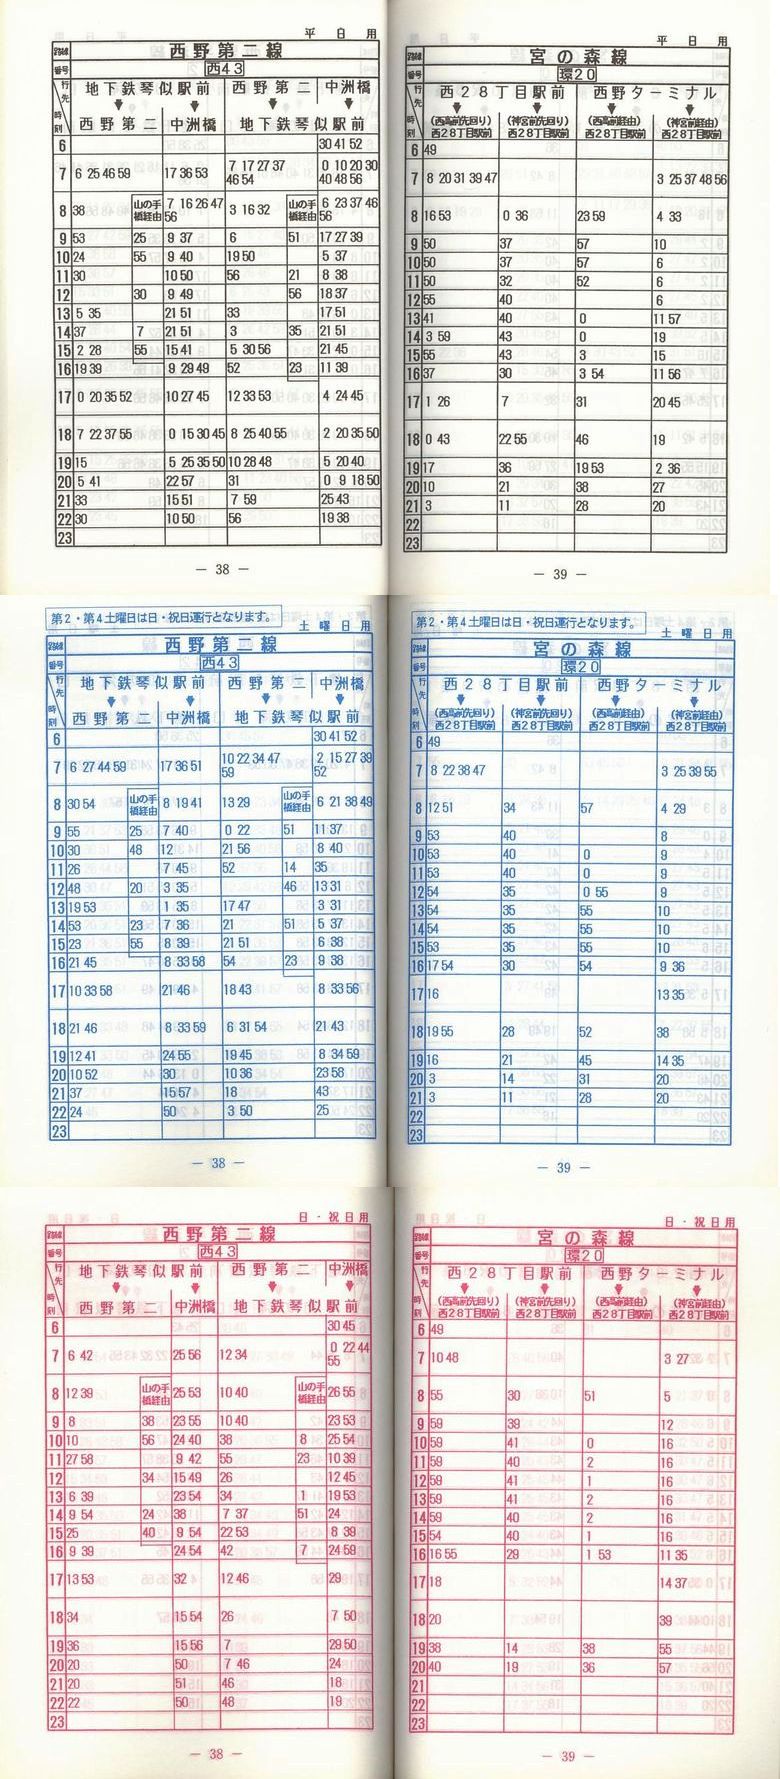 平日用
路線 西野第二線
番号 西43
行先 地下鉄琴似駅前 西野第二 中洲橋
時刻 西野第二 中洲橋 地下鉄琴似駅前
6 30 41 52
7 6 25 46 59 17 36 53 7 17 27 37 46 54 0 10 20 30 40 48 56
8 38 山の手橋経由 7 16 26 47 56 3 16 32 山の手橋経由 6 23 37 46 56
9 53 25 9 37 6 51 17 27 39
10 24 55 9 40 19 50 5 37
11 30 10 50 56 21 8 38
12 30 9 49 56 18 37
13 5 35 21 51 33 17 51
14 37 7 21 51 3 35 21 51
15 2 28 55 15 41 5 30 56 21 45
16 19 39 9 29 49 52 23 11 39
17 0 20 35 52 10 27 45 12 33 53 4 24 45
18 7 22 37 55 0 15 30 45 8 25 40 55 2 20 35 50
19 15 5 25 35 50 10 28 48 5 20 40
20 5 41 22 57 31 0 9 18 50
21 33 15 51 7 59 25 43
22 30 10 50 56 19 38
23
― 38 ―
平日用
路線 宮の森線
番号 環20
行先 西28丁目駅前 西野ターミナル
時刻 (西高前先回り) 西28丁目駅前 (神宮前先回り) 西28丁目駅前 (西高前経由) 西28丁目駅前 (神宮前経由) 西28丁目駅前
6 49
7 8 20 31 39 47 3 25 37 48 56
8 16 53 0 36 23 59 4 33
9 50 37 57 10
10 50 37 57 6
11 50 32 52 6
12 55 40 6
13 41 40 0 11 57
14 3 59 43 0 19
15 55 43 3 15
16 37 30 3 54 11 56
17 1 26 7 31 20 45
18 0 43 22 55 46 19
19 17 36 19 53 2 36
20 10 21 38 27
21 3 11 28 20
22
23
― 39 ―
第2・第4土曜日は日・祝日運行となります。
土曜日用
路線 西野第二線
番号 西43
行先 地下鉄琴似駅前 西野第二 中洲橋
時刻 西野第二 中洲橋 地下鉄琴似駅前
6 30 41 52
7 8 27 44 59 17 36 51 10 22 34 47 59 2 15 27 39 52
8 30 54 山の手橋経由 8 19 41 13 29 山の手橋経由 6 21 38 49
9 55 25 7 40 0 22 51 11 37
10 30 48 12 21 56 8 40
11 26 7 45 52 14 35
12 48 20 3 35 46 13 31
13 19 53 1 35 17 47 3 31
14 53 23 7 36 21 51 5 37
15 23 55 8 39 21 51 6 38
16 21 45 8 33 58 54 23 9 38
17 10 33 58 21 46 18 43 8 33 56
18 21 46 8 33 59 6 31 54 21 43
19 12 41 24 55 19 45 8 34 59
20 10 52 30 10 36 23 58
21 37 15 57 18 43
22 24 50 3 50 25
23
― 38 ―
第2・第4土曜日は日・祝日運行となります。
土曜日用
路線 宮の森線
番号 環20
行先 西28丁目駅前 西野ターミナル
時刻 (西高前先回り) 西28丁目駅前 (神宮前先回り) 西28丁目駅前 (西高前経由) 西28丁目駅前 (神宮前経由) 西28丁目駅前
6 49
7 8 22 38 47 3 25 39 55
8 12 51 34 57 4 29
9 53 40 8
10 53 40 0 9
11 53 40 0 9
12 54 35 0 55 9
13 54 35 55 10
14 54 35 55 10
15 53 35 55 10
16 17 54 30 54 9 36
17 16 13 35
18 19 55 28 52 38
19 16 21 45 14 35
20 3 14 31 20
21 3 11 28 20
22
23
― 39 ―
日・祝日用
路線 西野第二線
番号 西43
行先 地下鉄琴似駅前 西野第二 中洲橋
時刻 西野第二 中洲橋 地下鉄琴似駅前
6 30 45
7 6 42 25 56 12 34 0 22 44 55
8 12 39 山の手橋経由 25 53 10 40 山の手橋経由 26 55
9 8 38 23 55 10 40 23 53
10 10 56 24 40 38 8 25 54
11 27 58 9 42 55 23 10 39
12 34 15 49 26 12 45
13 6 39 23 54 34 1 19 53
14 9 54 24 38 7 37 51 24
15 25 40 9 54 22 53 8 39
16 9 39 24 54 42 7 24 59
17 13 53 32 12 46 29
18 34 15 54 26 7 50
19 36 15 56 7 29 50
20 20 50 7 46 24
21 20 51 46 18
22 22 50 48 19
23
― 38 ―
日・祝日用
路線 宮の森線
番号 環20
行先 西28丁目駅前 西野ターミナル
時刻 (西高前先回り) 西28丁目駅前 (神宮前先回り) 西28丁目駅前 (西高前経由) 西28丁目駅前 (神宮前経由) 西28丁目駅前
6 49
7 10 48 3 27
8 55 30 51 5
9 59 39 12
10 59 41 0 16
11 59 40 2 16
12 59 41 1 16
13 59 41 2 16
14 59 40 2 16
15 54 40 1 16
16 16 55 29 1 53 11 35
17 18 14 37
18 20 39
19 38 14 38 55
20 40 19 36 57
21
22
23
― 39 ―